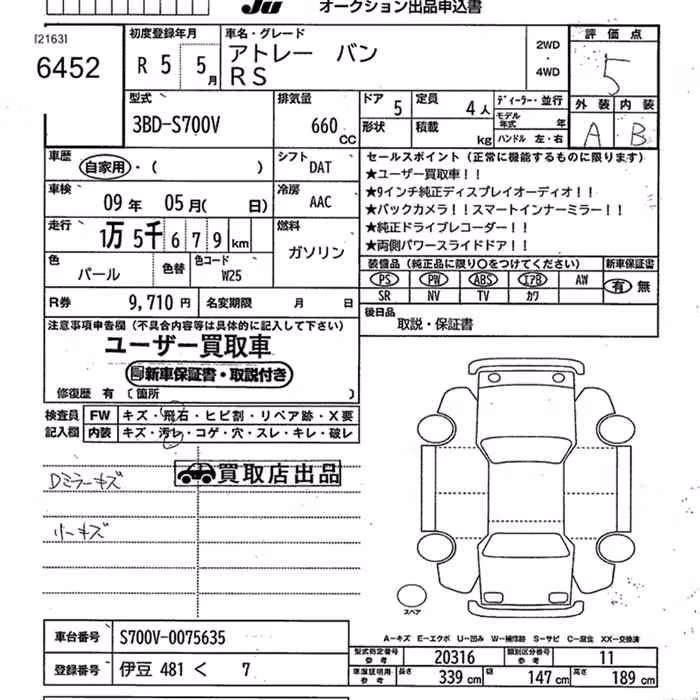 JU オークション出品申込書
[2163]
6452
初度登録年月
R 5 5月
車名・グレード
アトレー バン
RS
2WD
・
4WD
評価点
5
外装 内装
A B
型式
3BD-S700V
排気量
660 CC
ドア 5
定員 4人
形状
積載 kg
ディーラー・並行
モデル年式 年
ハンドル 左・右
車歴
自家用・( )
シフト
DAT
車検
09年 05月( 日)
冷房
AAC
走行
1万 5千 6 7 9 km
燃料
ガソリン
色
パール
色替
色コード
W25
R券 9,710円
名変期限 月 日
セールスポイント(正常に機能するものに限ります)
★ユーザー買取車!!
★9インチ純正ディスプレイオーディオ!!
★バックカメラ!!スマートインナーミラー!!
★純正ドライブレコーダー!!
★両側パワースライドドア!!
装備品(純正品に限り○をつけてください)
新車保証書
PS PW ABS エアB AW
SR NV TV カワ
有 無
後日品
取説・保証書
注意事項申告欄(不具合内容等は具体的に記入して下さい)
ユーザー買取車
新車保証書・取説付き
修復歴 有〔箇所 〕
検査員
記入欄
FW キズ・飛石・ヒビ割・リペア跡・X要
内装 キズ・汚レ・コゲ・穴・スレ・キレ・破レ
買取店出品
Dミラーキズ
リーキズ
スペア
A−キズ E−エクボ U−凹み W−補修跡 S−サビ C−腐食 XX−交換済
車台番号 S700V-0075635
登録番号 伊豆 481 く 7
型式指定番号
参考
20316
類別区分番号
参考
11
車庫証明用
参考
長さ 339cm 幅 147cm 高さ 189cm